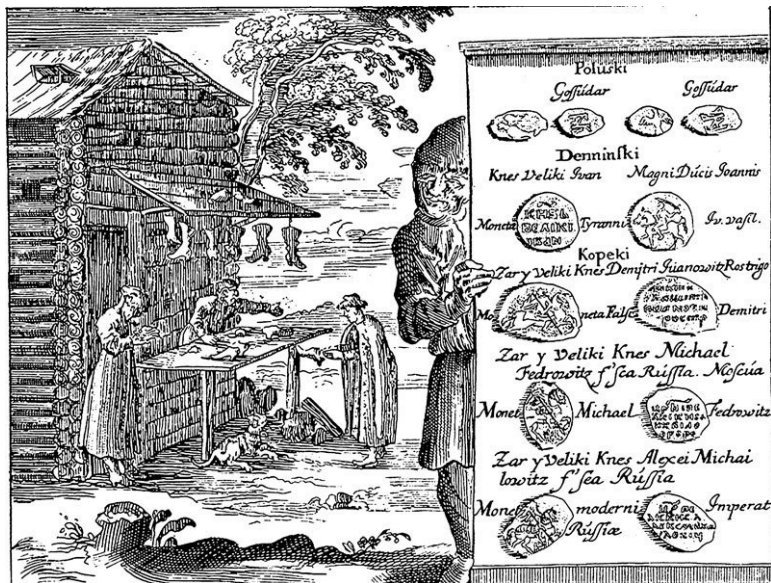 Poluski
Gossudar Gossudar
Denninski
Knes Veliki Ivan Magni Ducis Joannis
Moneta Tyranni Iv. vasil.
КНѦЅЬ
ВЕЛИКІ
ІВАН
Kopeki
Zar y Veliki Knes Demjtri Juanowitz Rostrigo
Mo neta Falsc Demitri
Zar y Veliki Knes Michael
Fedrowitz f'sea Russia. Moscua
Monet Michael Fedrowitz
Zar y Veliki Knes Alexei Michai
lowitz f'sea Russia
Monet moderni Imperat
Russiæ